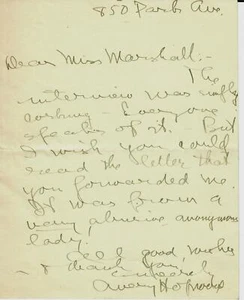 850 Park Ave.
Dear Miss Marshall:-
The
interview was simply
corking - Everyone
speaks of it. But
I wish you could
read the letter that
you forwarded me.
It was from a
very abusive anonymous
lady.
All good wishes
& thank you
Sincerely
Avery Hopwood